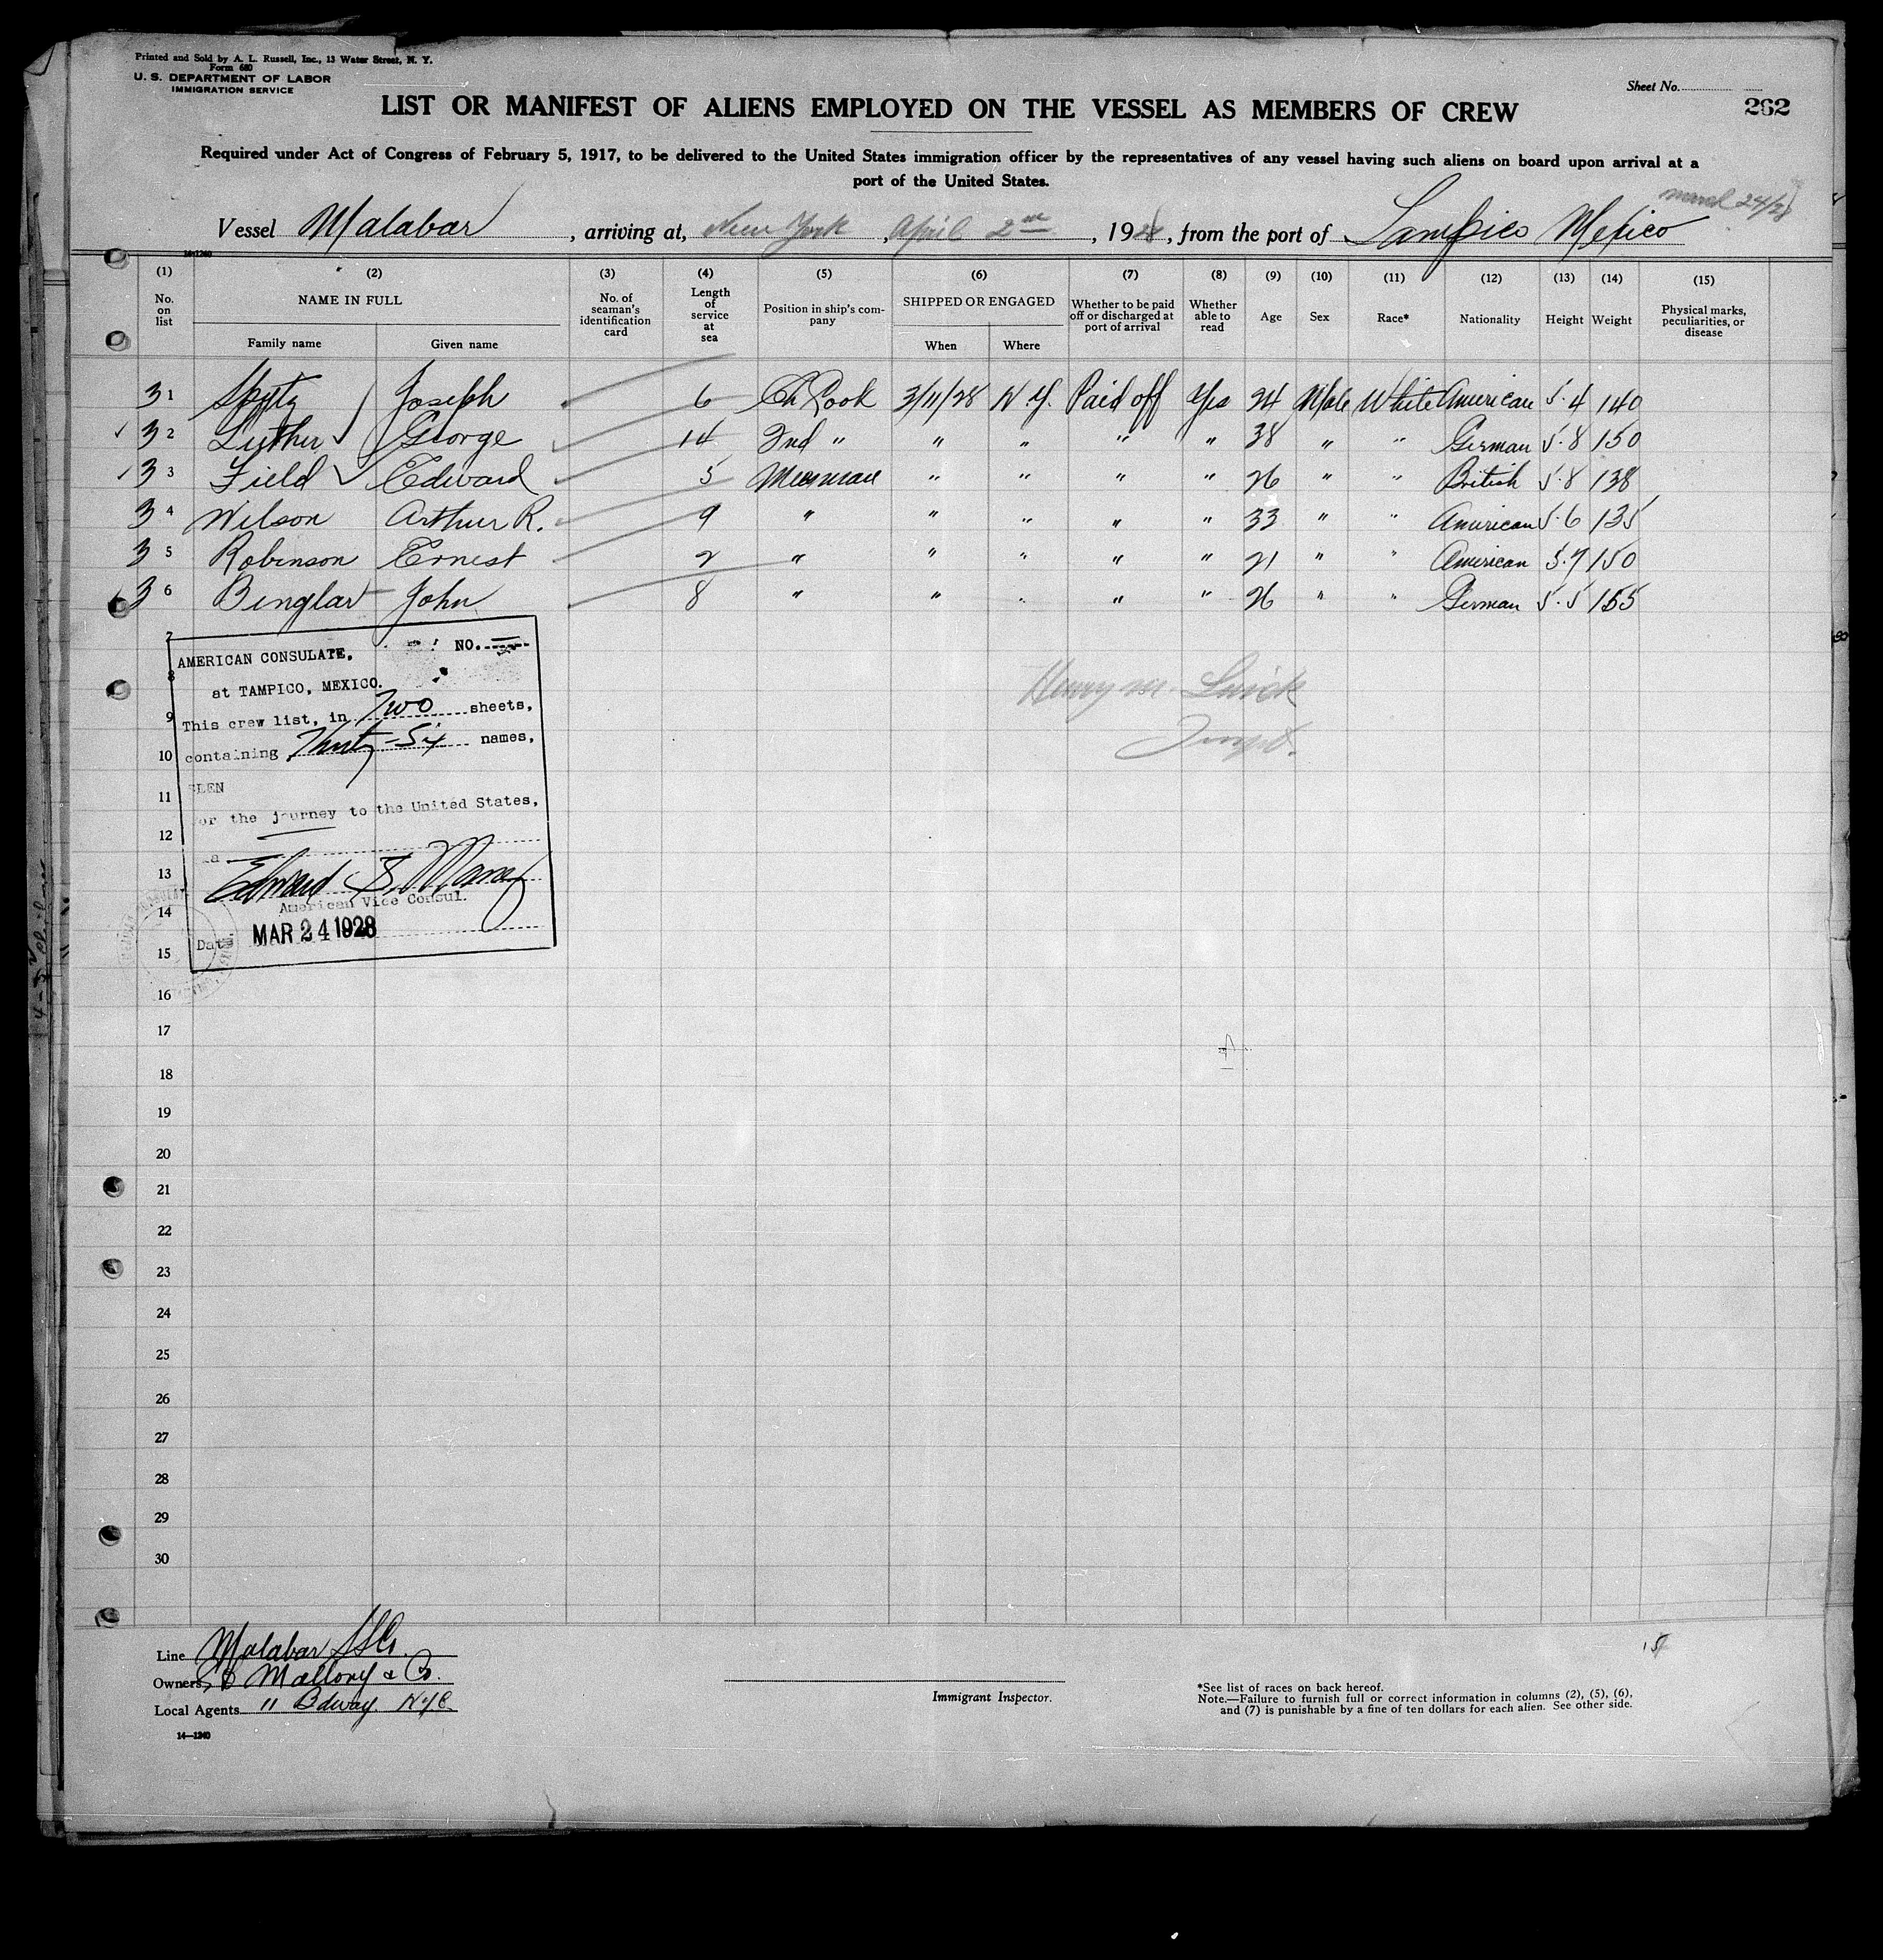 Printed and Sold by A. L. Russell, Inc., 13 Water Street, N. Y.
Form 680
U. S. DEPARTMENT OF LABOR
IMMIGRATION SERVICE
Sheet No.
262
LIST OR MANIFEST OF ALIENS EMPLOYED ON THE VESSEL AS MEMBERS OF CREW
Required under Act of Congress of February 5, 1917, to be delivered to the United States immigration officer by the representatives of any vessel having such aliens on board upon arrival at a
port of the United States.
March 24/28
Vessel Malabar, arriving at, New York, April 2nd, 1928, from the port of Tampico Mexico
14-1240
(1) (2) (3) (4) (5) (6) (7) (8) (9) (10) (11) (12) (13) (14) (15)
No. on list NAME IN FULL Family name Given name No. of seaman's identification card Length of service at sea Position in ship's company SHIPPED OR ENGAGED When Where Whether to be paid off or discharged at port of arrival Whether able to read Age Sex Race* Nationality Height Weight Physical marks, peculiarities, or disease
31 Spitz Joseph 6 Ch Cook 3/11/28 N.Y. Paid off Yes 24 Male White American 5.4 140
32 Luther George 14 2nd " " " " " 38 " " German 5.8 150
33 Field Edward 5 Messman " " " " 26 " " British 5.8 138
34 Wilson Arthur R. 9 " " " " " 33 " " American 5.6 135
35 Robinson Ernest 2 " " " " " 21 " " American 5.7 150
36 Binglar John 8 " " " " " 26 " " German 5.5 155
7
8
9
10
11
12
13
14
15
16
17
18
19
20
21
22
23
24
25
26
27
28
29
30
AMERICAN CONSULATE, NO.
at TAMPICO, MEXICO.
This crew list, in Two sheets,
containing Thirty-Six names,
SEEN
for the journey to the United States,
Edward S. Maney
American Vice Consul.
Date MAR 24 1928
Henry M.
Line Malabar SS Co.
Owners Mallory & Co.
Local Agents 11 Bdway. N.Y.C.
14-1240
Immigrant Inspector.
*See list of races on back hereof.
Note.—Failure to furnish full or correct information in columns (2), (5), (6),
and (7) is punishable by a fine of ten dollars for each alien. See other side.